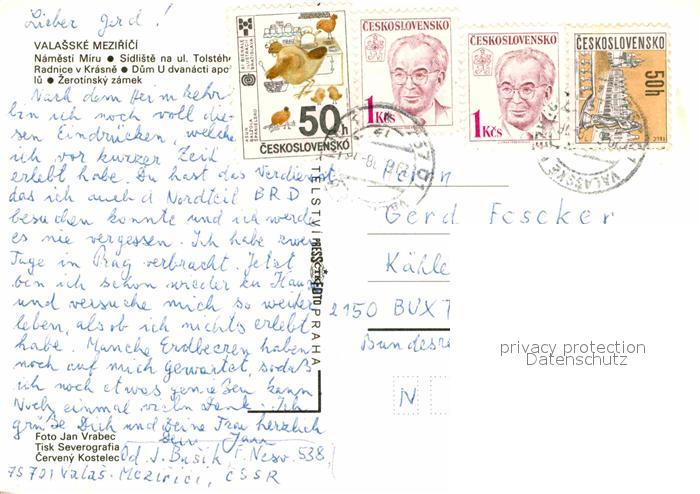 Lieber Gerd!
VALAŠSKÉ MEZIŘÍČÍ
Náměstí Míru ● Sídliště na ul. Tolstého
Radnice v Krásně ● Dům U dvanácti apo
lů ● Žerotínský zámek
Nach dem Heimkehr
bin ich noch voll die-
sen Eindrücken, welche
ich vor kurzer Zeit
erlebt habe. Du hast das Verdienst,
das ich auch d Nordteil BRD
besuchen konnte und ich werde
es nie vergessen. Ich habe zwei
Tage in Prag verbracht. Jetzt
bin ich schon wieder zu Hause
und versuche mich so weiter
leben, als ob ich nichts erlebt
habe. Manche Erdbeeren haben
noch auf mich gewartet, sodaß
ich noch etwas genießen kann
Noch einmal vieln Dank. Ich
grüße Dich und Deine Frau herzlich
Dein Jan
Foto Jan Vrabec
Tisk Severografia
Červený Kostelec
Od J. Bušík F. Nesv. 538,
75701 Valaš. Meziříčí, ČSSR
50h
ČESKOSLOVENSKO
ČESKOSLOVENSKO
1Kčs
ČESKOSLOVENSKO
1Kčs
ČESKOSLOVENSKO
50h
757 01
VALAŠSKÉ
TELSTVÍ PRESSFOTO PRAHA
Gerd Fescker
Kähle
2150 BUXT
Bundesre
N
privacy protection
Datenschutz